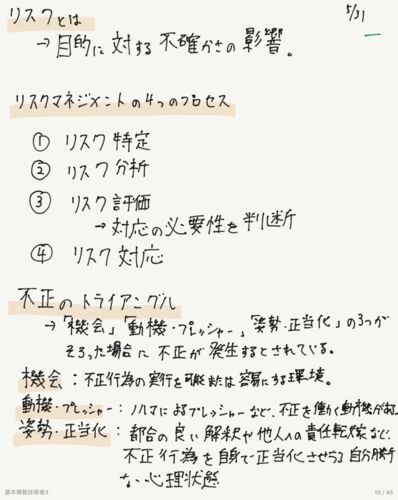 リスクとは
5/31
→ 目的に対する不確かさの影響。
リスクマネジメントの4つのプロセス
① リスク特定
② リスク分析
③ リスク評価
→ 対応の必要性を判断
④ リスク対応
不正のトライアングル
→ 「機会」「動機・プレッシャー」「姿勢・正当化」の3つが
そろった場合に不正が発生するとされている。
機会：不正行為の実行を可能または容易にする環境。
動機・プレッシャー：ノルマによるプレッシャーなど、不正を働く動機がある。
姿勢・正当化：都合の良い解釈や他人への責任転嫁など、
不正行為を自身で正当化させうる自分勝手
ない心理状態
基本情報技術者3
10 / 45